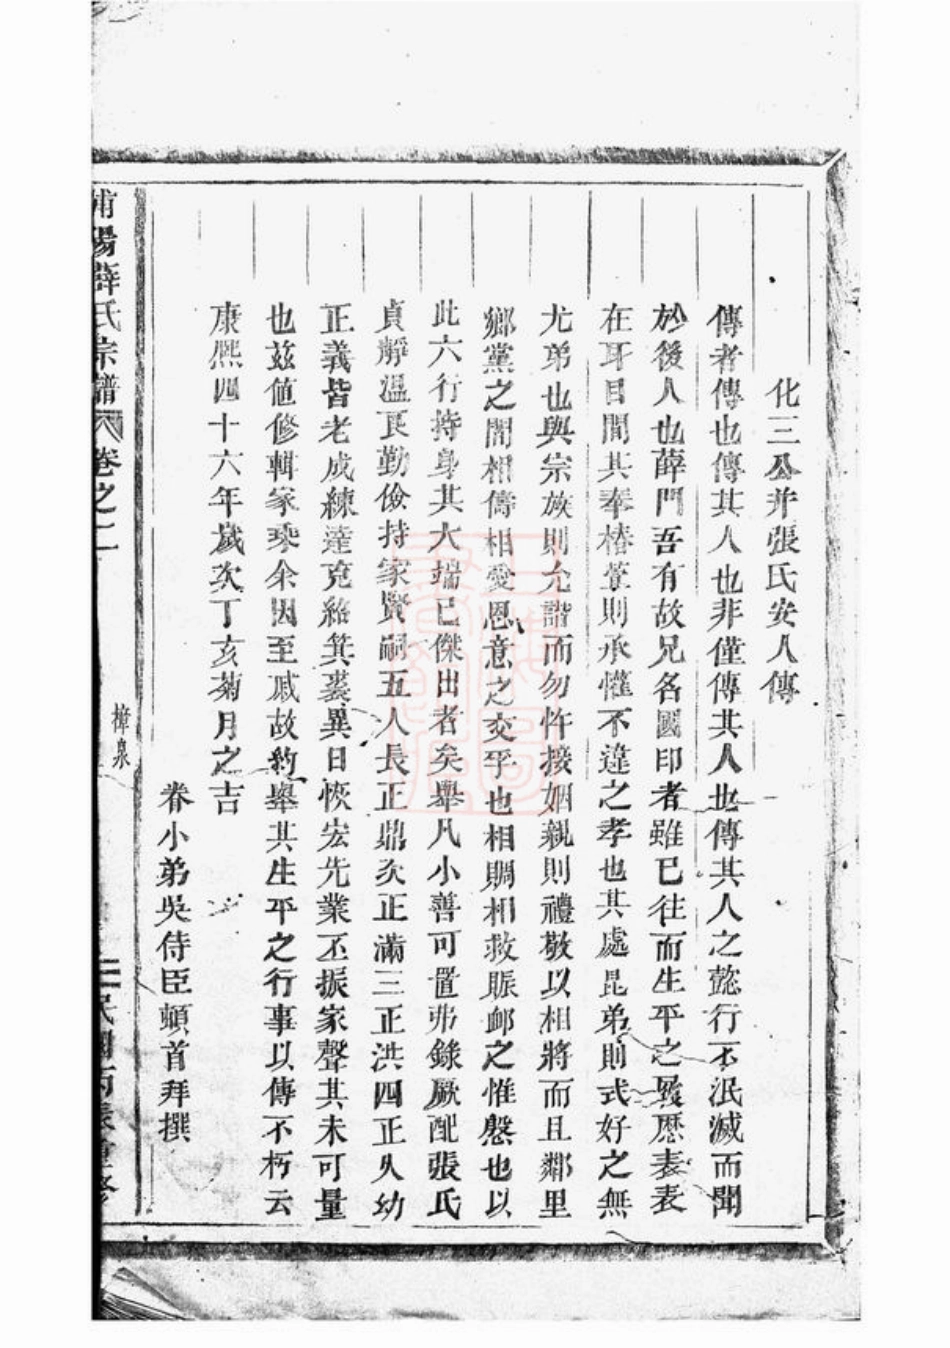 化三公并張氏安人傳
傳者傳也傳其人也非僅傳其人也傳其人之懿行不泯滅而聞
於後人也薛門吾有故兄名國印者雖已往而生平之履歷表表
在耳目間其奉椿萱則承懽不違之孝也其處昆弟則式好之無
尤弟也與宗族則允諧而勿忤接姻親則禮敬以相將而且鄰里
鄉黨之間相儔相愛恩意之交孚也相賙相救賑卹之惟慇也以
此六行持身其大端已傑出者矣舉凡小善可置弗錄厥配張氏
貞靜溫良勤儉持家賢嗣五人長正鼎次正滿三正洪四正久幼
正義皆老成練達克紹箕裘異日恢宏先業丕振家聲其未可量
也茲値修輯家乘余因至戚故約舉其生平之行事以傳不朽云
康熙四十六年歲次丁亥菊月之吉
眷小弟吳侍臣頓首拜撰
浦陽薛氏宗譜 卷之一 樟泉 民國丙辰重修